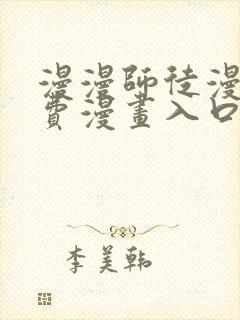 漫漫師徒漫
費漫畫入口
李美韩